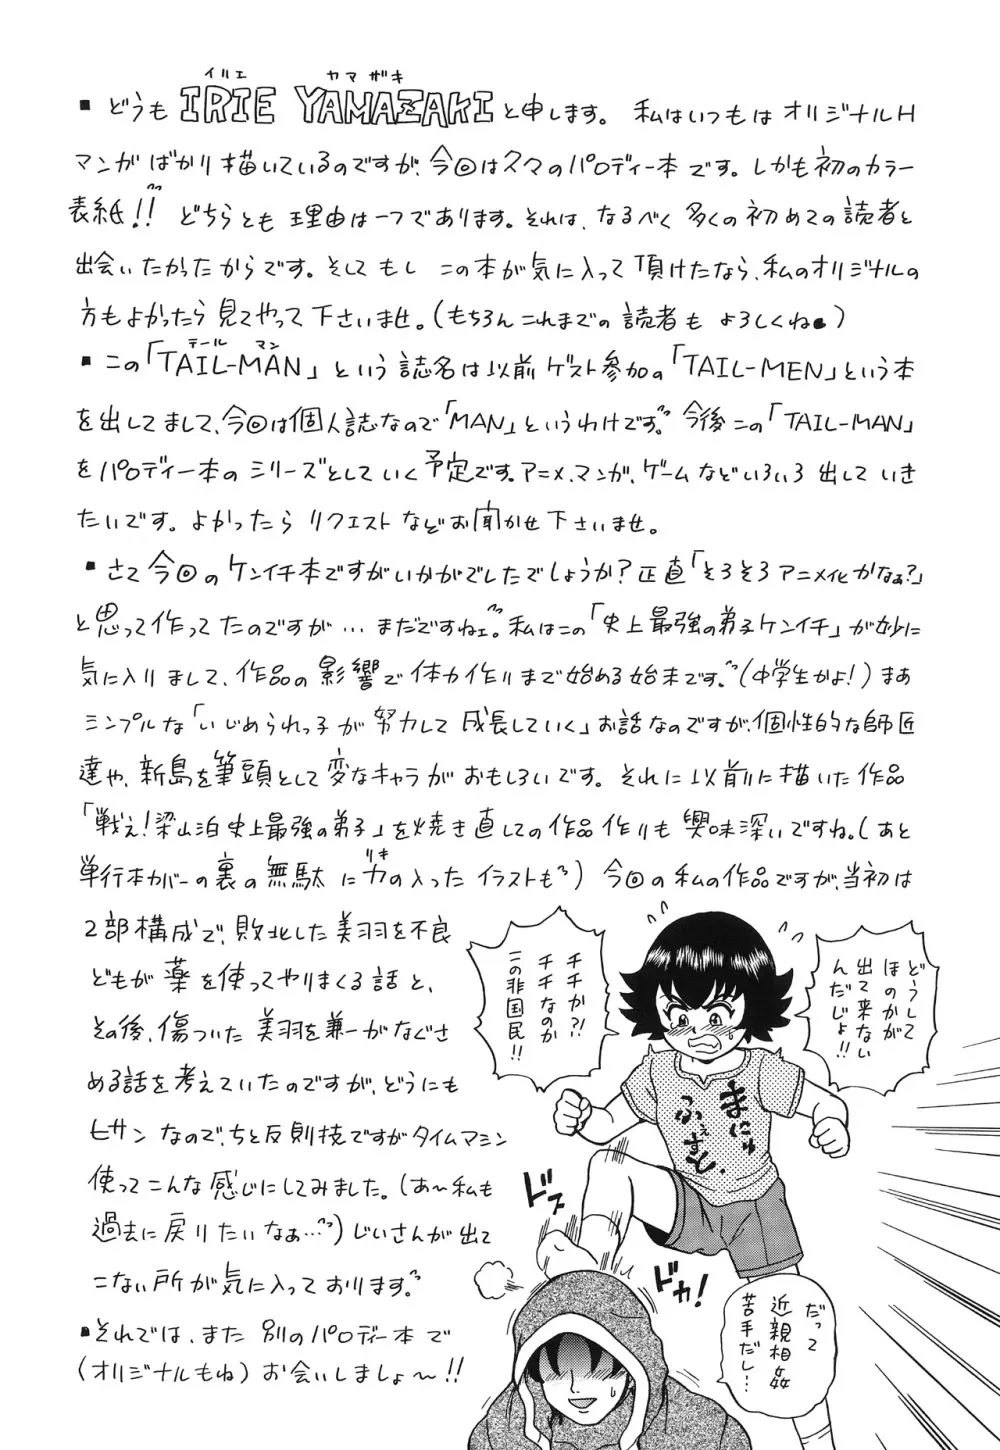 イリエ ヤマザキ
■ どうも IRIE YAMAZAKI と申します。 私はいつもは オリジナルH
マンガばかり描いているのですが、今回は久々のパロディー本です。しかも初のカラー
表紙!! どちらとも理由は一つであります。それは、なるべく多くの初めての読者と
出会いたかったからです。そしてもし この本が気に入って頂けたなら、私のオリジナルの
方もよかったら見てやって下さいませ。(もちろんこれまでの読者も よろしくね)
テール マン
■ この「TAIL-MAN」という誌名は以前ゲスト参加の「TAIL-MEN」という本
を出してまして、今回は個人誌なので「MAN」というわけです。今後この「TAIL-MAN」
をパロディー本のシリーズとしていく予定です。アニメ、マンガ、ゲームなどいろいろ出していき
たいです。よかったら リクエストなどお聞かせ下さいませ。
■ さて今回のケンイチ本ですがいかがでしたでしょうか?正直「そろそろアニメ化かなぁ?」
と思って作ってたのですが…まだですねェ。私はこの「史上最強の弟子ケンイチ」が妙に
気に入りまして、作品の影響で体力作りまで始める始末です。(中学生かよ!)まあ
シンプルな「いじめられっ子が努力して成長していく」お話なのですが、個性的な師匠
達や、新島を筆頭として変なキャラがおもしろいです。それに以前に描いた作品
「戦え!梁山泊史上最強の弟子」を焼き直しての作品作りも興味深いですね。(あと
リキ
単行本カバーの裏の無駄に力の入ったイラストも) 今回の私の作品ですが、当初は
2部構成で、敗北した美羽を不良
どもが薬を使ってやりまくる話と、
その後、傷ついた美羽を兼一がなぐさ
める話を考えていたのですが、どうにも
ヒサンなので、ちと反則技ですがタイムマシン
使ってこんな感じにしてみました。(あ〜私も
過去に戻りたいなぁ…)じいさんが出て
こない所が気に入っております。
■ それでは、また別のパロディー本で
(オリジナルもね)お会いしましょ〜!!
どうして
ほのかが
出て来ない
んだじょ!!
チチか?!
チチなのか
この非国民!!
まにゅ
ふぇすと、
ドズ
ドカ!
だって
近親相姦
苦手だし…